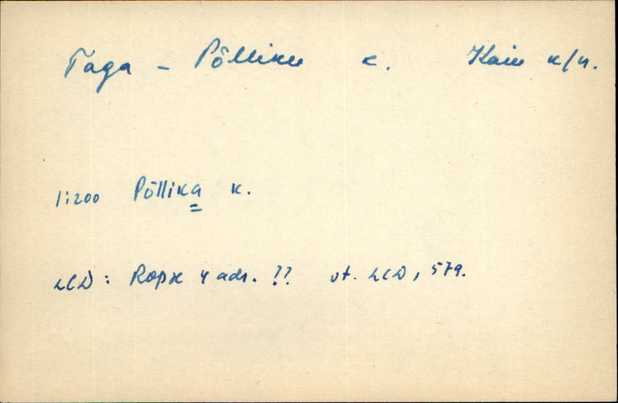 Taga - Põlliku k.
1:200 Põllika k.
LCD: Ropk 4 adr. ?? vt. LCD, 579.